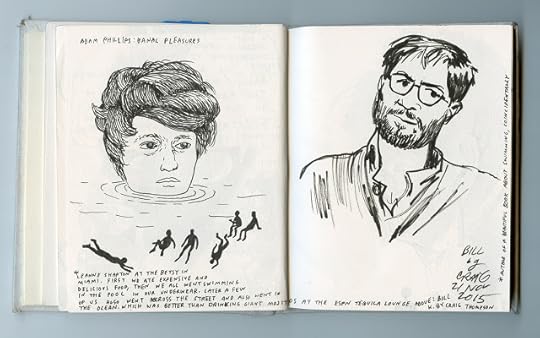 ADAM PHILLIPS: BANAL PLEASURES
*LEANNE SHAPTON AT THE BETSY IN
MIAMI. FIRST WE ATE EXPENSIVE AND
DELICIOUS FOOD, THEN WE ALL WENT SWIMMING
IN THE POOL IN OUR UNDERWEAR. LATER A FEW
OF US ALSO WENT ACROSS THE STREET AND ALSO WENT IN
THE OCEAN. WHICH WAS BETTER THAN DRINKING GIANT MOJITOS AT THE ESPN TEQUILA LOUNGE
ABOVE: BILL
K. BY CRAIG THOMPSON
BILL
by
CRAIG
21 NOV
2015
* AUTHOR OF A BEAUTIFUL BOOK ABOUT SWIMMING, COINCIDENTALLY